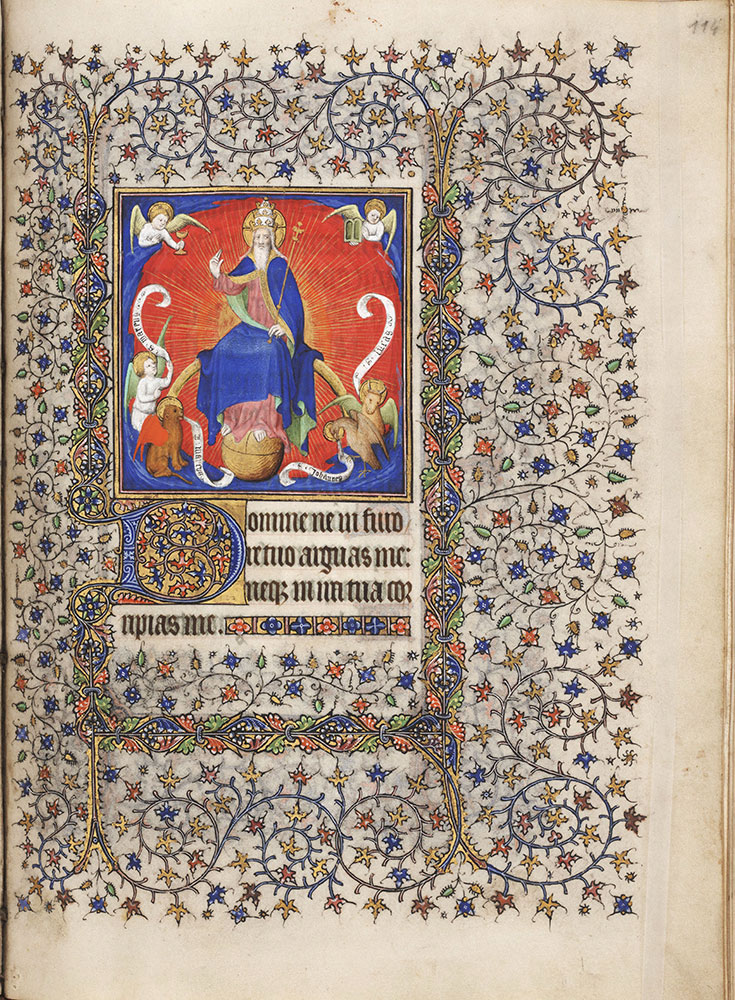 114
S. lucas
S. Johannes
Domine ne in furo
re tuo arguas me:
neqꝫ in ira tua cor
ripias me.